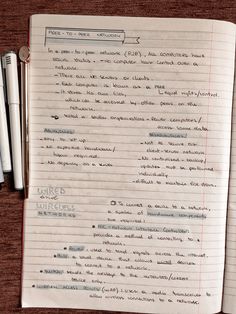 PEER-TO-PEER NETWORKS
In a peer-to-peer network (P2P), ALL computers have
equal status - no computer have control over a
network.
- There are no servers or clients.
- Each computer is known as a PEER
↳ equal rights/control.
- It stores its own files,
which can be accessed by other peers on the
network.
used in smaller organisations - fewer computers/
access same data
ADVANTAGES
DISADVANTAGES
- Easy to set up
- Not as secure as
client-server network.
- No expensive hardware/
- No centralised backup/
required.
updates must be performed
individually
- No dependency on a server
- difficult to maintain file stores.
WIRED
WIRELESS
NETWORKS
To connect a device to a network,
a number of hardware components
are required:
NIC - Network Interface Controller:
provides a method of connecting to a
network.
used to send signals across the internet.
a small device that allows devices
to connect to a network.
sends the message to the intended/correct
device only.
WIRELESS ACCESS POINTS (WAP): uses a radio transceiver to
allow wireless connections to a network.